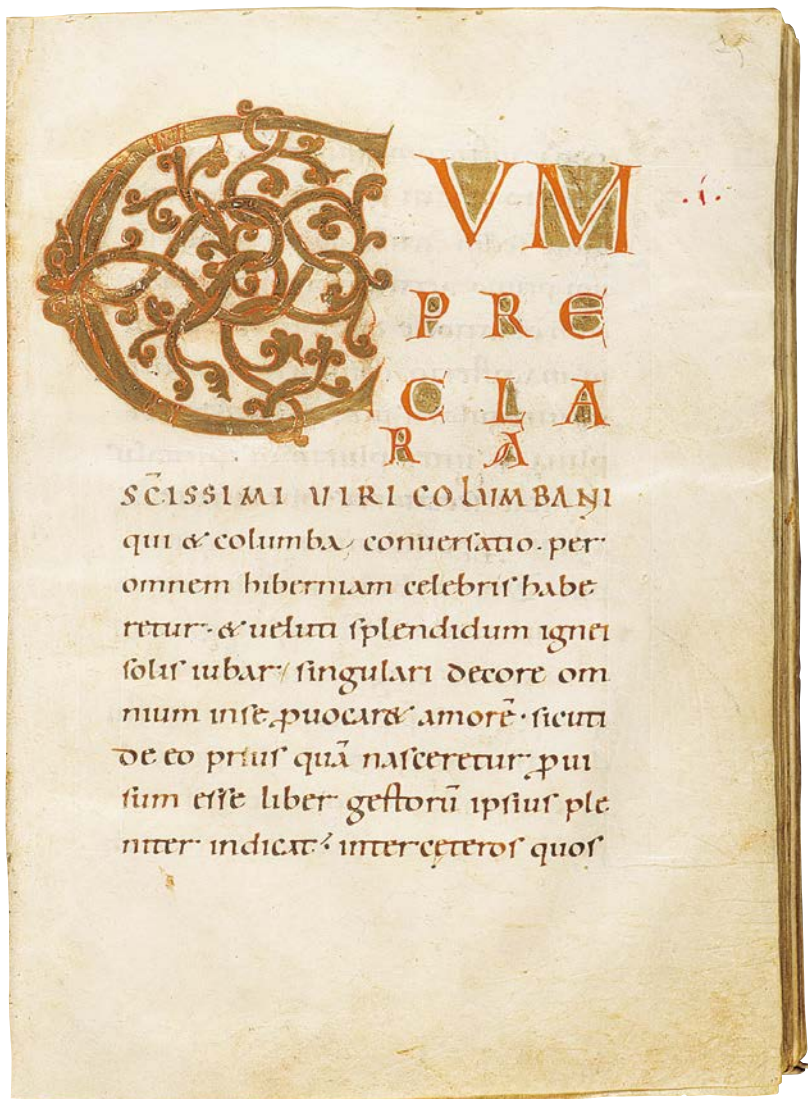 CVM
.i.
PRE
CLA
RA
SC̄ISSIMI VIRI COLUMBANI
qui & columba, conuersatio. per
omnem hiberniam celebris habe
retur. & ueluti splendidum ignei
solis iubar / singulari decore om
nium in se ꝓuocar& amorē. sicuti
de eo prius quā nasceretur ꝓui
sum esse liber gestorū ipsius ple
niter indicat; inter cęteros quos